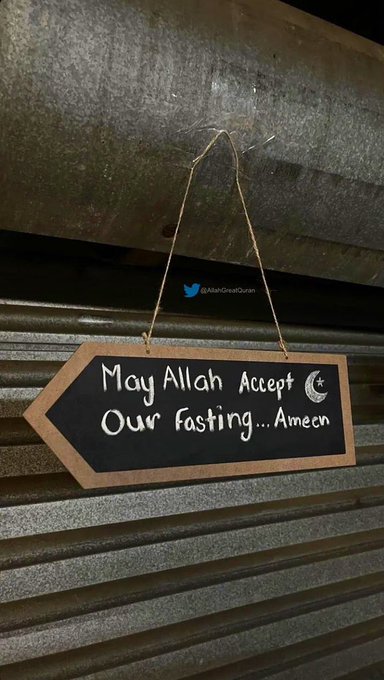 @AllahGreatQuran
May Allah Accept
Our Fasting... Ameen